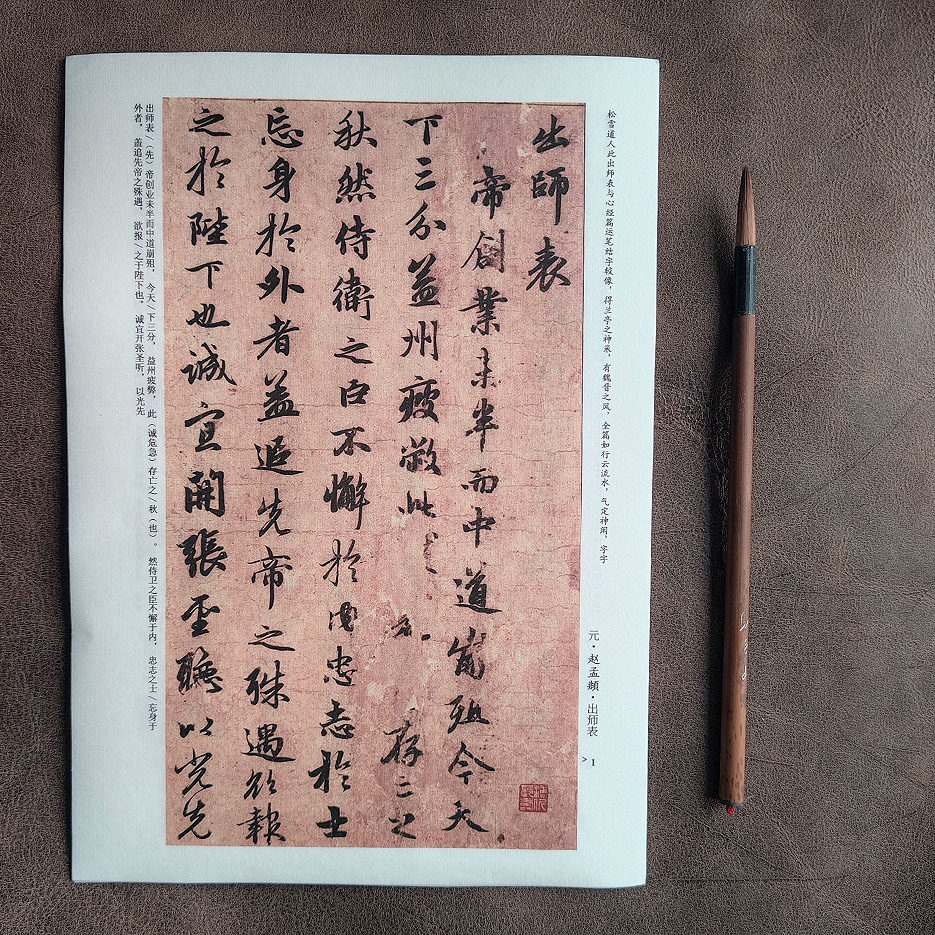 松雪道人此出师表与心经篇运笔结字较像，得兰亭之神采，有魏晋之风，全篇如行云流水，气定神闲，字字
元·赵孟頫·出师表
> 1
出師表
帝創業未半而中道崩殂今天
下三分益州疲敝此存亡之
秋然侍衛之臣不懈於内忠志於士
忘身於外者蓋追先帝之殊遇欲報
之於陛下也誠宜開張聖聽以光先
出师表/（先）帝创业未半而中道崩殂，今天/下三分，益州疲弊，此（诚危急）存亡之/秋（也）。然侍卫之臣不懈于内，忠志之士/忘身于
外者，盖追先帝之殊遇，欲报/之于陛下也。诚宜开张圣听，以光先